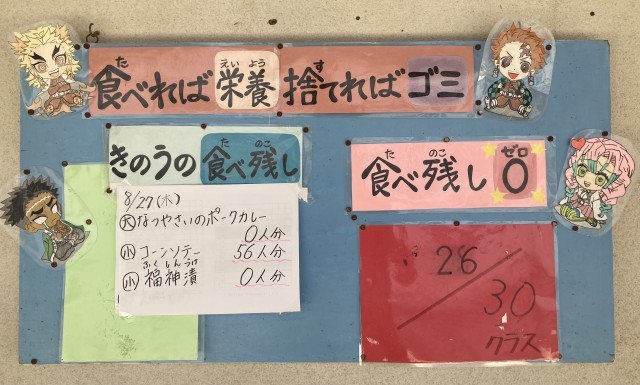 食べれば栄養 捨てればゴミ
た えいよう す
きのうの食べ残し
た のこ
8/27(木)
大 なつやさいのポークカレー
0人分
小 コーンソテー 56人分
ふくしんづけ
小 福神漬 0人分
食べ残し 0
た のこ ゼロ
26/30
クラス